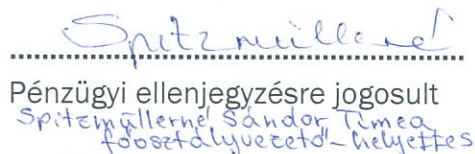 Spitzmüllerné
Pénzügyi ellenjegyzésre jogosult
Spitzmüllerné Sándor Tímea
főosztályvezető-helyettes